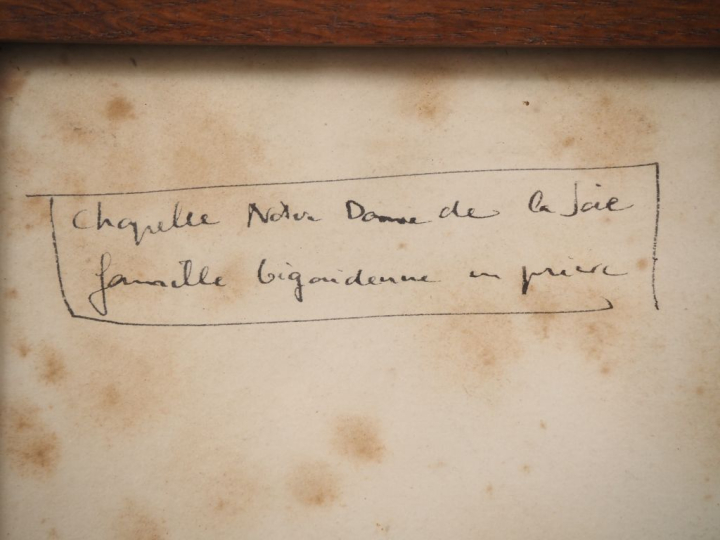 Chapelle Notre Dame de la Joie
famille bigoudenne en prière